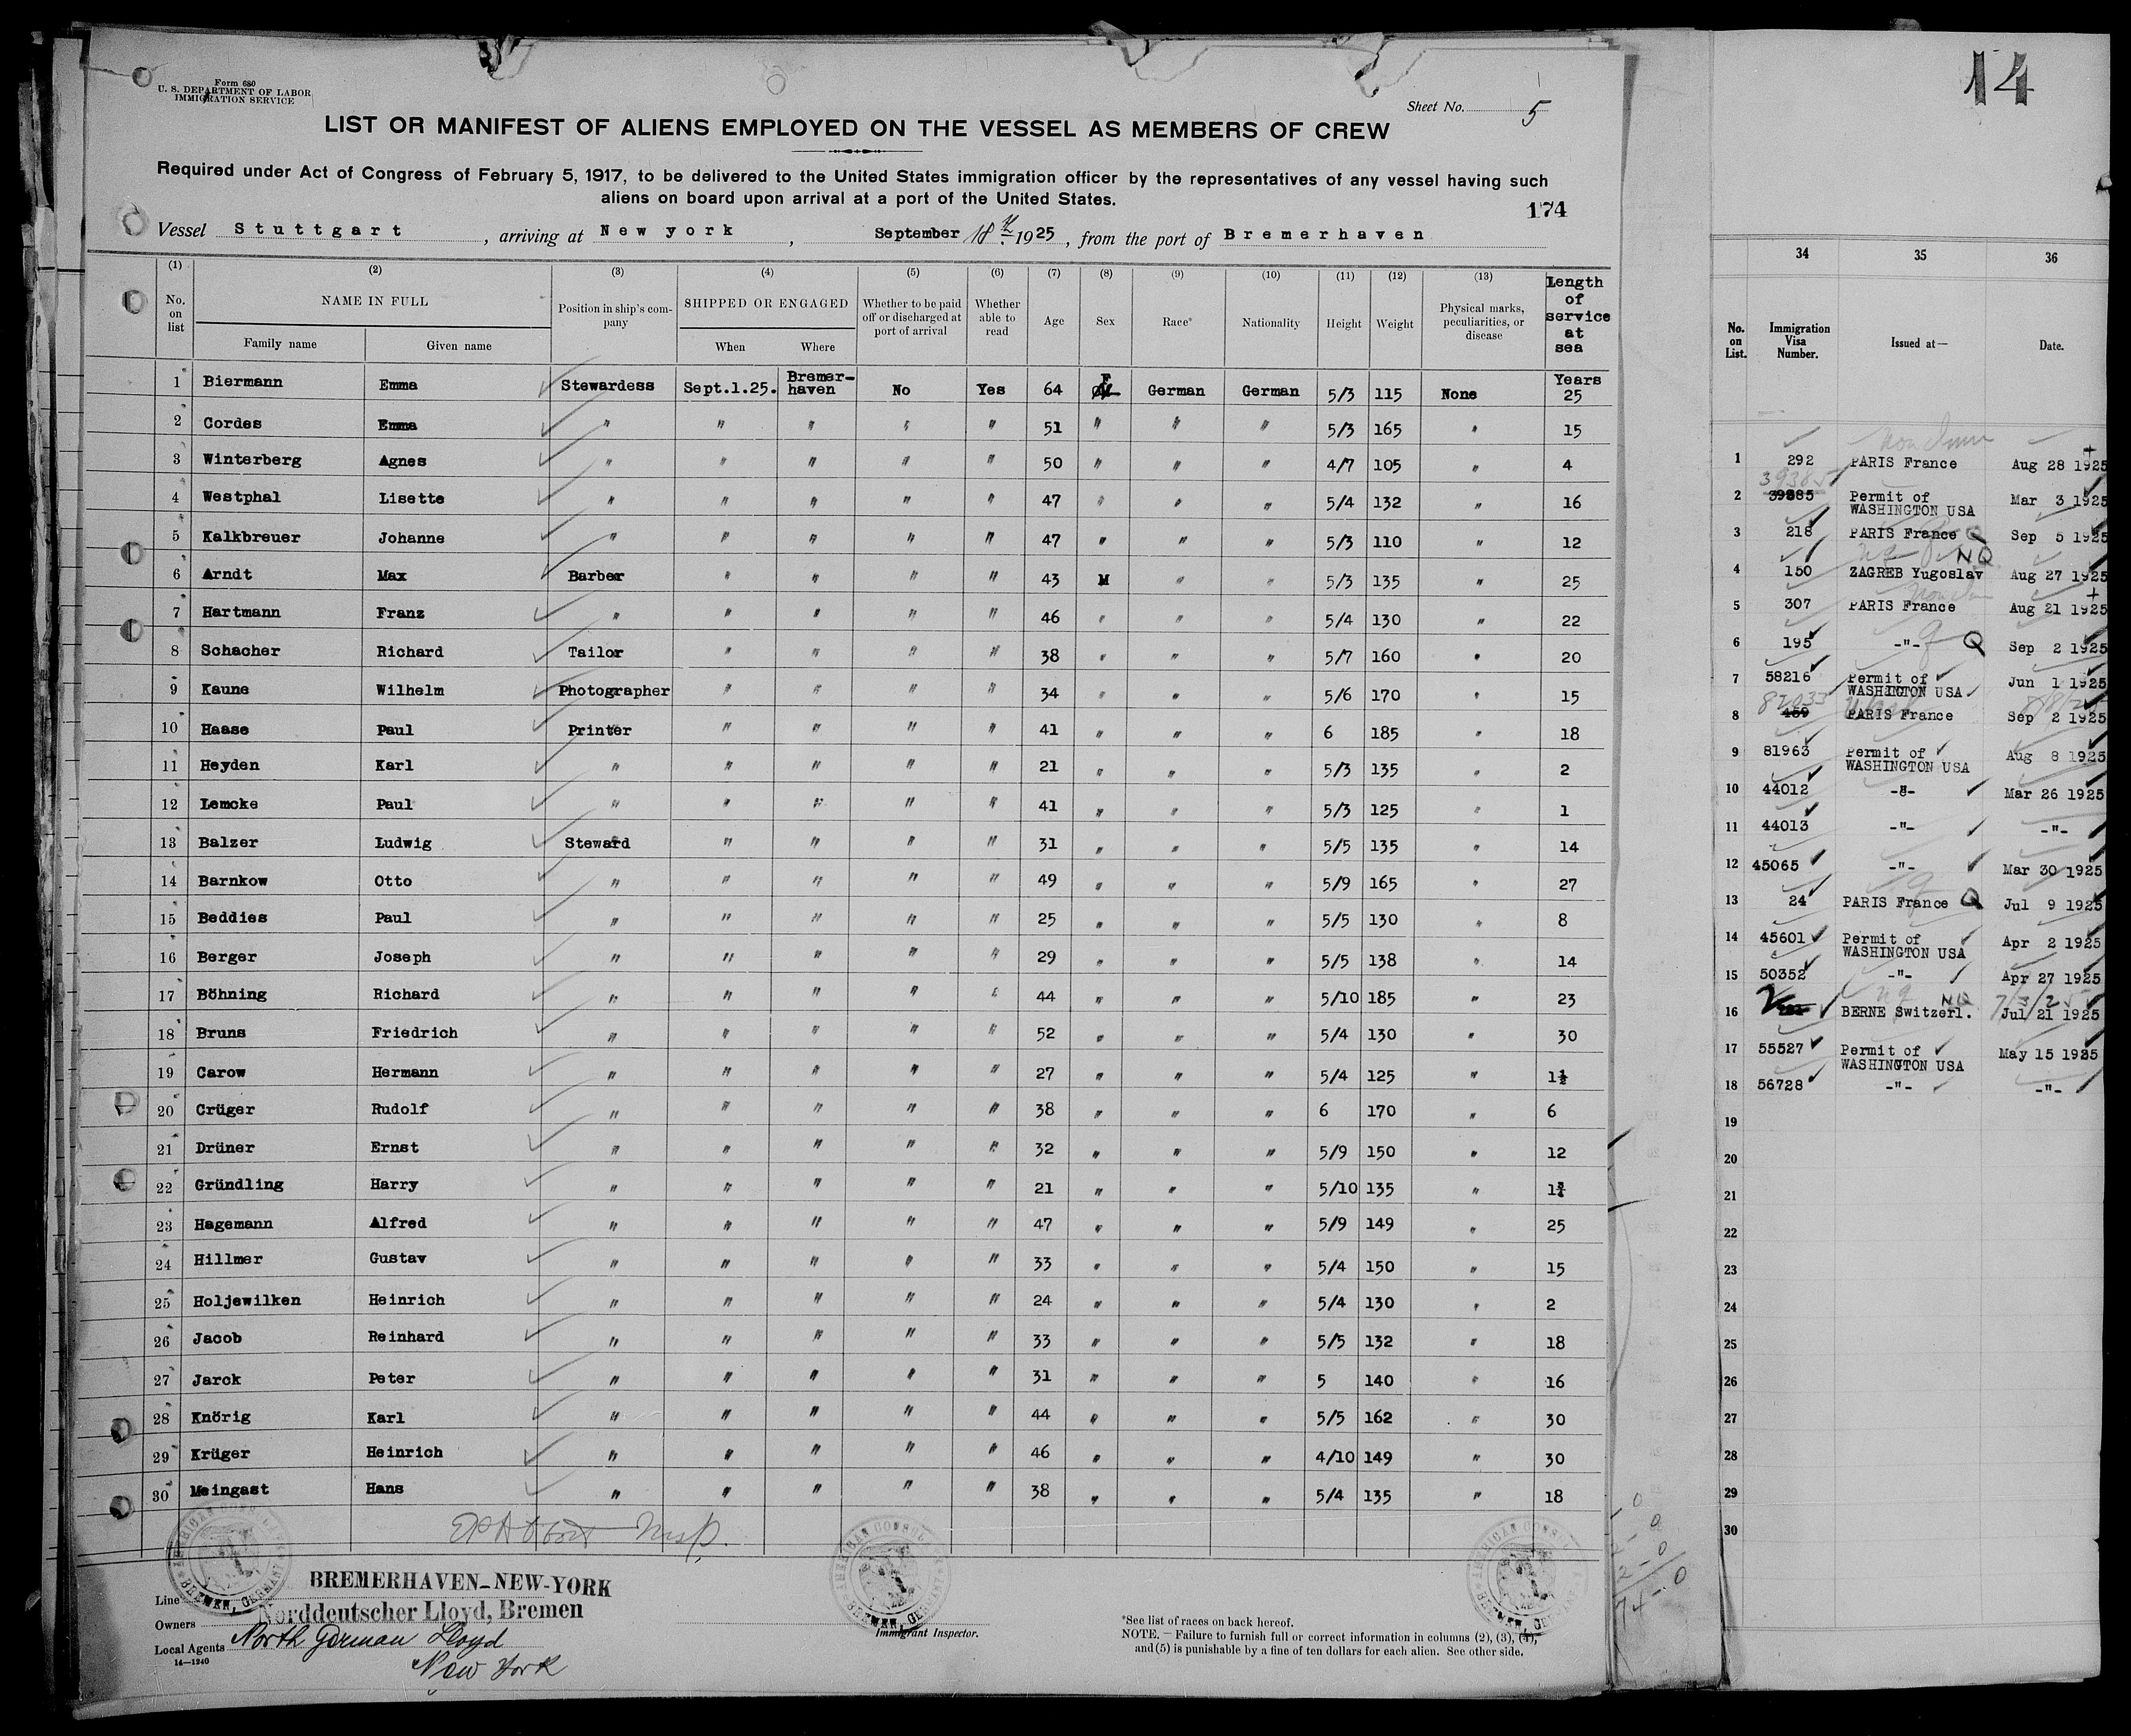 Form 680
U. S. DEPARTMENT OF LABOR
IMMIGRATION SERVICE
Sheet No. 5
LIST OR MANIFEST OF ALIENS EMPLOYED ON THE VESSEL AS MEMBERS OF CREW
Required under Act of Congress of February 5, 1917, to be delivered to the United States immigration officer by the representatives of any vessel having such
aliens on board upon arrival at a port of the United States.
174
Vessel Stuttgart, arriving at New york, September 18th 1925, from the port of Bremerhaven
(1) (2) (3) (4) (5) (6) (7) (8) (9) (10) (11) (12) (13)
No. on list NAME IN FULL Family name Given name Position in ship's company SHIPPED OR ENGAGED When Where Whether to be paid off or discharged at port of arrival Whether able to read Age Sex Race* Nationality Height Weight Physical marks, peculiarities, or disease Length of service at sea
1 Biermann Emma Stewardess Sept.1.25. Bremer-haven No Yes 64 F German German 5/3 115 None Years 25
2 Cordes Emma " " " " " 51 " " " 5/3 165 " 15
3 Winterberg Agnes " " " " " 50 " " " 4/7 105 " 4
4 Westphal Lisette " " " " " 47 " " " 5/4 132 " 16
5 Kalkbreuer Johanne " " " " " 47 " " " 5/3 110 " 12
6 Arndt Max Barber " " " " 43 M " " 5/3 135 " 25
7 Hartmann Franz " " " " " 46 " " " 5/4 130 " 22
8 Schacher Richard Tailor " " " " 38 " " " 5/7 160 " 20
9 Kaune Wilhelm Photographer " " " " 34 " " " 5/6 170 " 15
10 Haase Paul Printer " " " " 41 " " " 6 185 " 18
11 Heyden Karl " " " " " 21 " " " 5/3 135 " 2
12 Lemcke Paul " " " " " 41 " " " 5/3 125 " 1
13 Balzer Ludwig Steward " " " " 31 " " " 5/5 135 " 14
14 Barnkow Otto " " " " " 49 " " " 5/9 165 " 27
15 Beddies Paul " " " " " 25 " " " 5/5 130 " 8
16 Berger Joseph " " " " " 29 " " " 5/5 138 " 14
17 Böhning Richard " " " " " 44 " " " 5/10 185 " 23
18 Bruns Friedrich " " " " " 52 " " " 5/4 130 " 30
19 Carow Hermann " " " " " 27 " " " 5/4 125 " 1½
20 Crüger Rudolf " " " " " 38 " " " 6 170 " 6
21 Drüner Ernst " " " " " 32 " " " 5/9 150 " 12
22 Gründling Harry " " " " " 21 " " " 5/10 135 " 1¾
23 Hagemann Alfred " " " " " 47 " " " 5/9 149 " 25
24 Hillmer Gustav " " " " " 33 " " " 5/4 150 " 15
25 Holjewilken Heinrich " " " " " 24 " " " 5/4 130 " 2
26 Jacob Reinhard " " " " " 33 " " " 5/5 132 " 18
27 Jarck Peter " " " " " 31 " " " 5 140 " 16
28 Knörig Karl " " " " " 44 " " " 5/5 162 " 30
29 Krüger Heinrich " " " " " 46 " " " 4/10 149 " 30
30 Meingast Hans " " " " " 38 " " " 5/4 135 " 18
Insp.
AMERICAN CONSUL BREMEN, GERMANY
AMERICAN CONSUL BREMEN, GERMANY
AMERICAN CONSUL BREMEN, GERMANY
Line BREMERHAVEN-NEW-YORK
Owners Norddeutscher Lloyd, Bremen
Local Agents North German Lloyd
New York
14—1240
Immigrant Inspector.
*See list of races on back hereof.
NOTE.—Failure to furnish full or correct information in columns (2), (3), (4),
and (5) is punishable by a fine of ten dollars for each alien. See other side.
14
34 35 36
No. on List. Immigration Visa Number. Issued at— Date.
1 292 PARIS France Aug 28 1925
2 39385 Permit of WASHINGTON USA Mar 3 1925
3 218 PARIS France Q Sep 5 1925
4 150 ZAGREB Yugoslav NQ Aug 27 1925
5 307 PARIS France Aug 21 1925
6 195 -"- Q Sep 2 1925
7 58216 Permit of WASHINGTON USA Jun 1 1925
8 82033 459 PARIS France Sep 2 1925
9 81963 Permit of WASHINGTON USA Aug 8 1925
10 44012 -"- Mar 26 1925
11 44013 -"- -"-
12 45065 -"- Mar 30 1925
13 24 PARIS France Q Jul 9 1925
14 45601 Permit of WASHINGTON USA Apr 2 1925
15 50352 -"- Apr 27 1925
16 BERNE Switzerl. NQ Jul 21 1925
17 55527 Permit of WASHINGTON USA May 15 1925
18 56728 -"- -"-
19
20
21
22
23
24
25
26
27
28
29
30